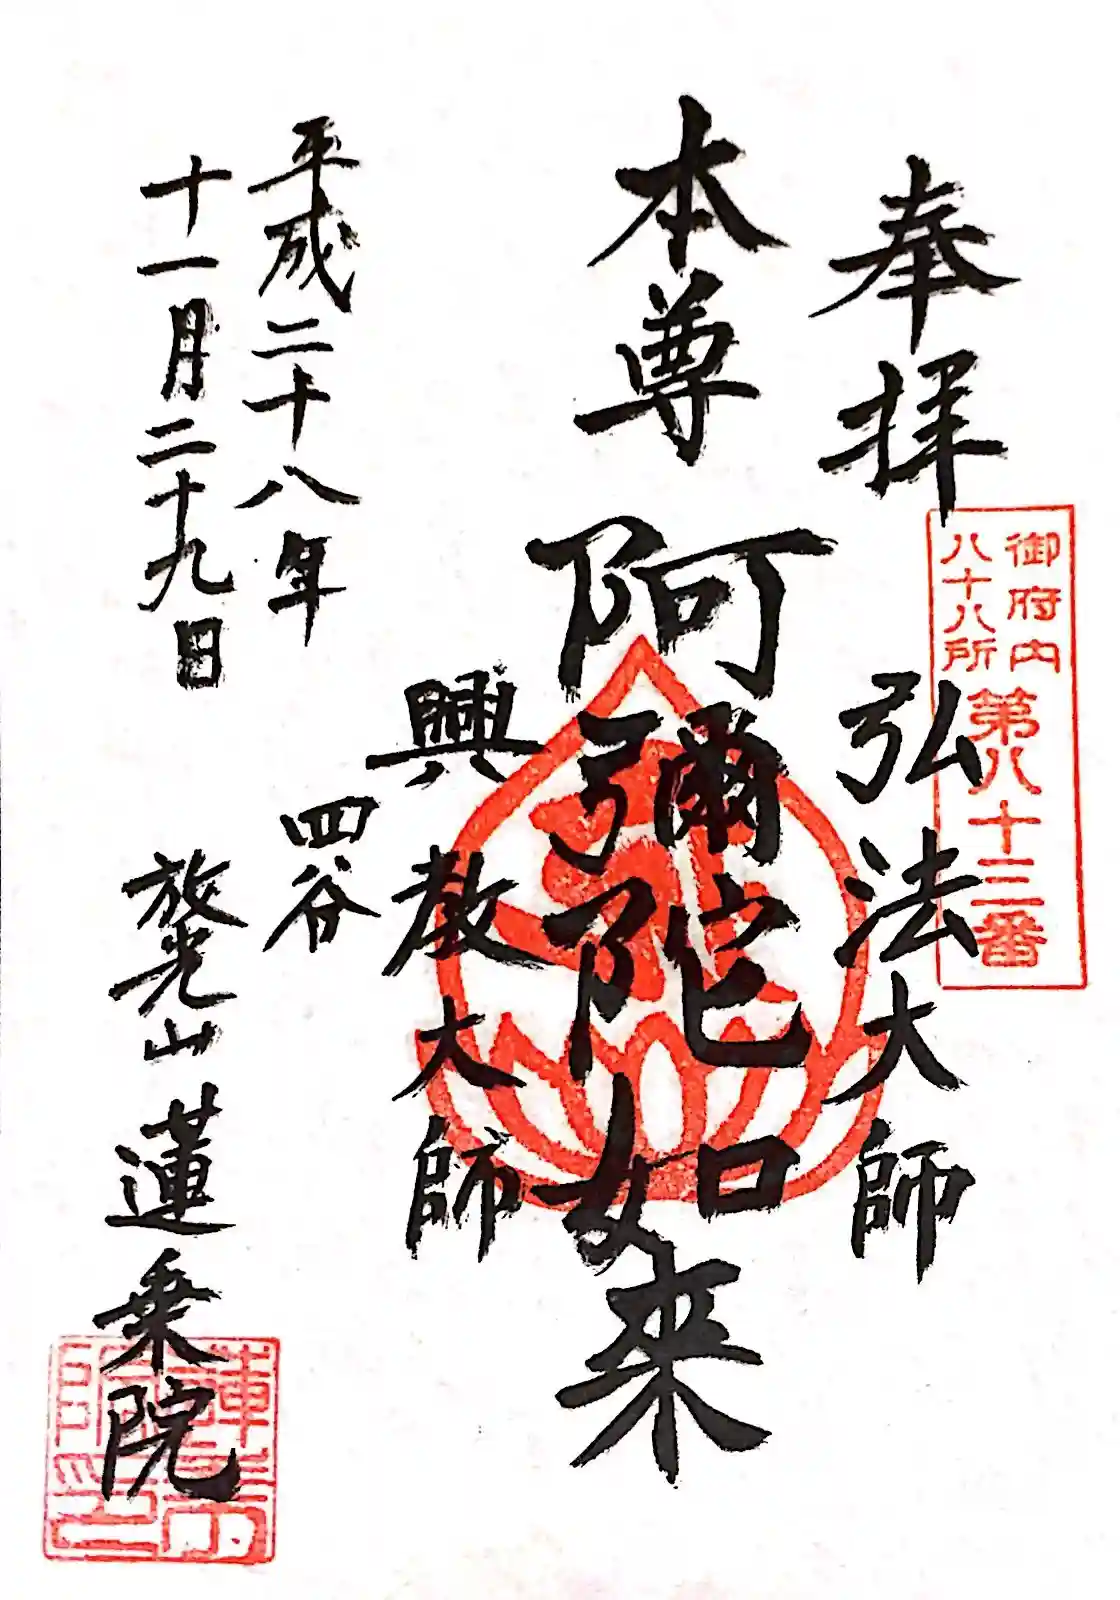 奉拝
御府内
八十八所
第八十三番
弘法大師
本尊
阿彌陀如来
興教大師
平成二十八年
十一月二十九日
四谷
放光山蓮乗院